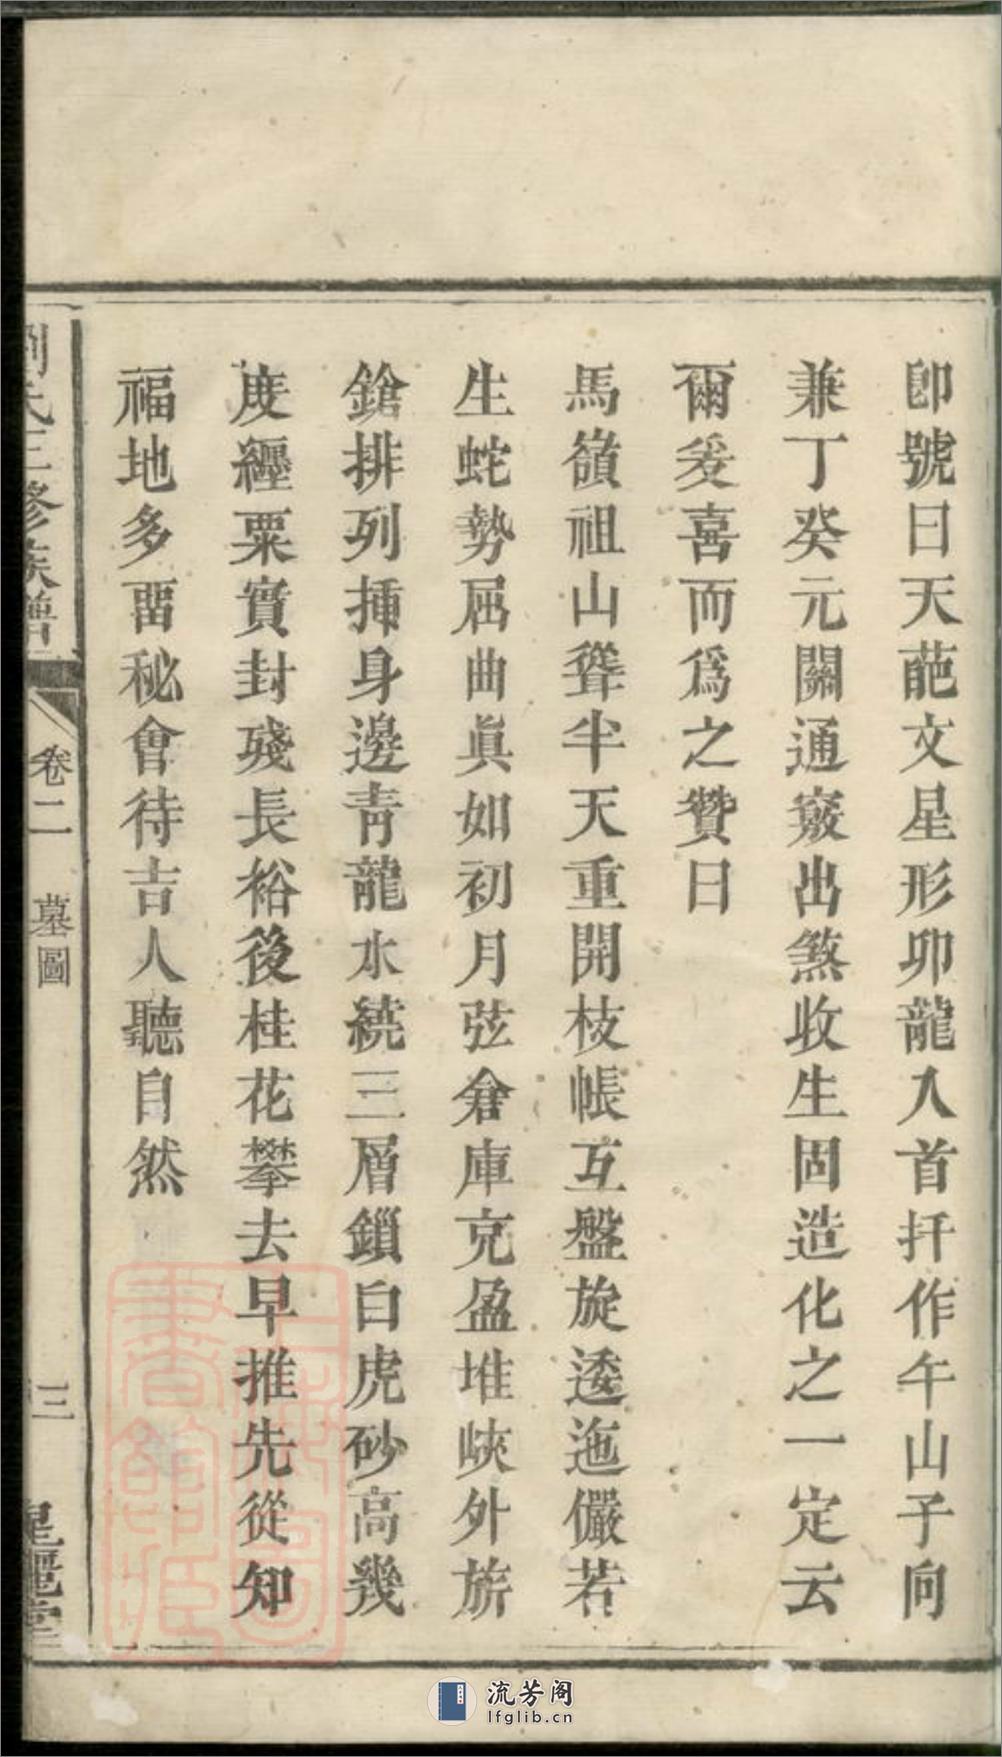 卽號曰天葩文星形卯龍入首扦作午山子向
兼丁癸元關通竅出煞收生固造化之一定云
爾爰喜而爲之贊曰
馬嶺祖山聳半天重開枝帳互盤旋逶迤儼若
生蛇勢屈曲眞如初月弦倉庫充盈堆峽外旂
鎗排列揷身邊青龍水繞三層鎖白虎砂高幾
度纏粟實封殘長裕後桂花攀去早推先從知
福地多畱秘會待吉人聽自然
劉氏三修族譜
卷二
墓圖
三
流芳阁
lfglib.cn